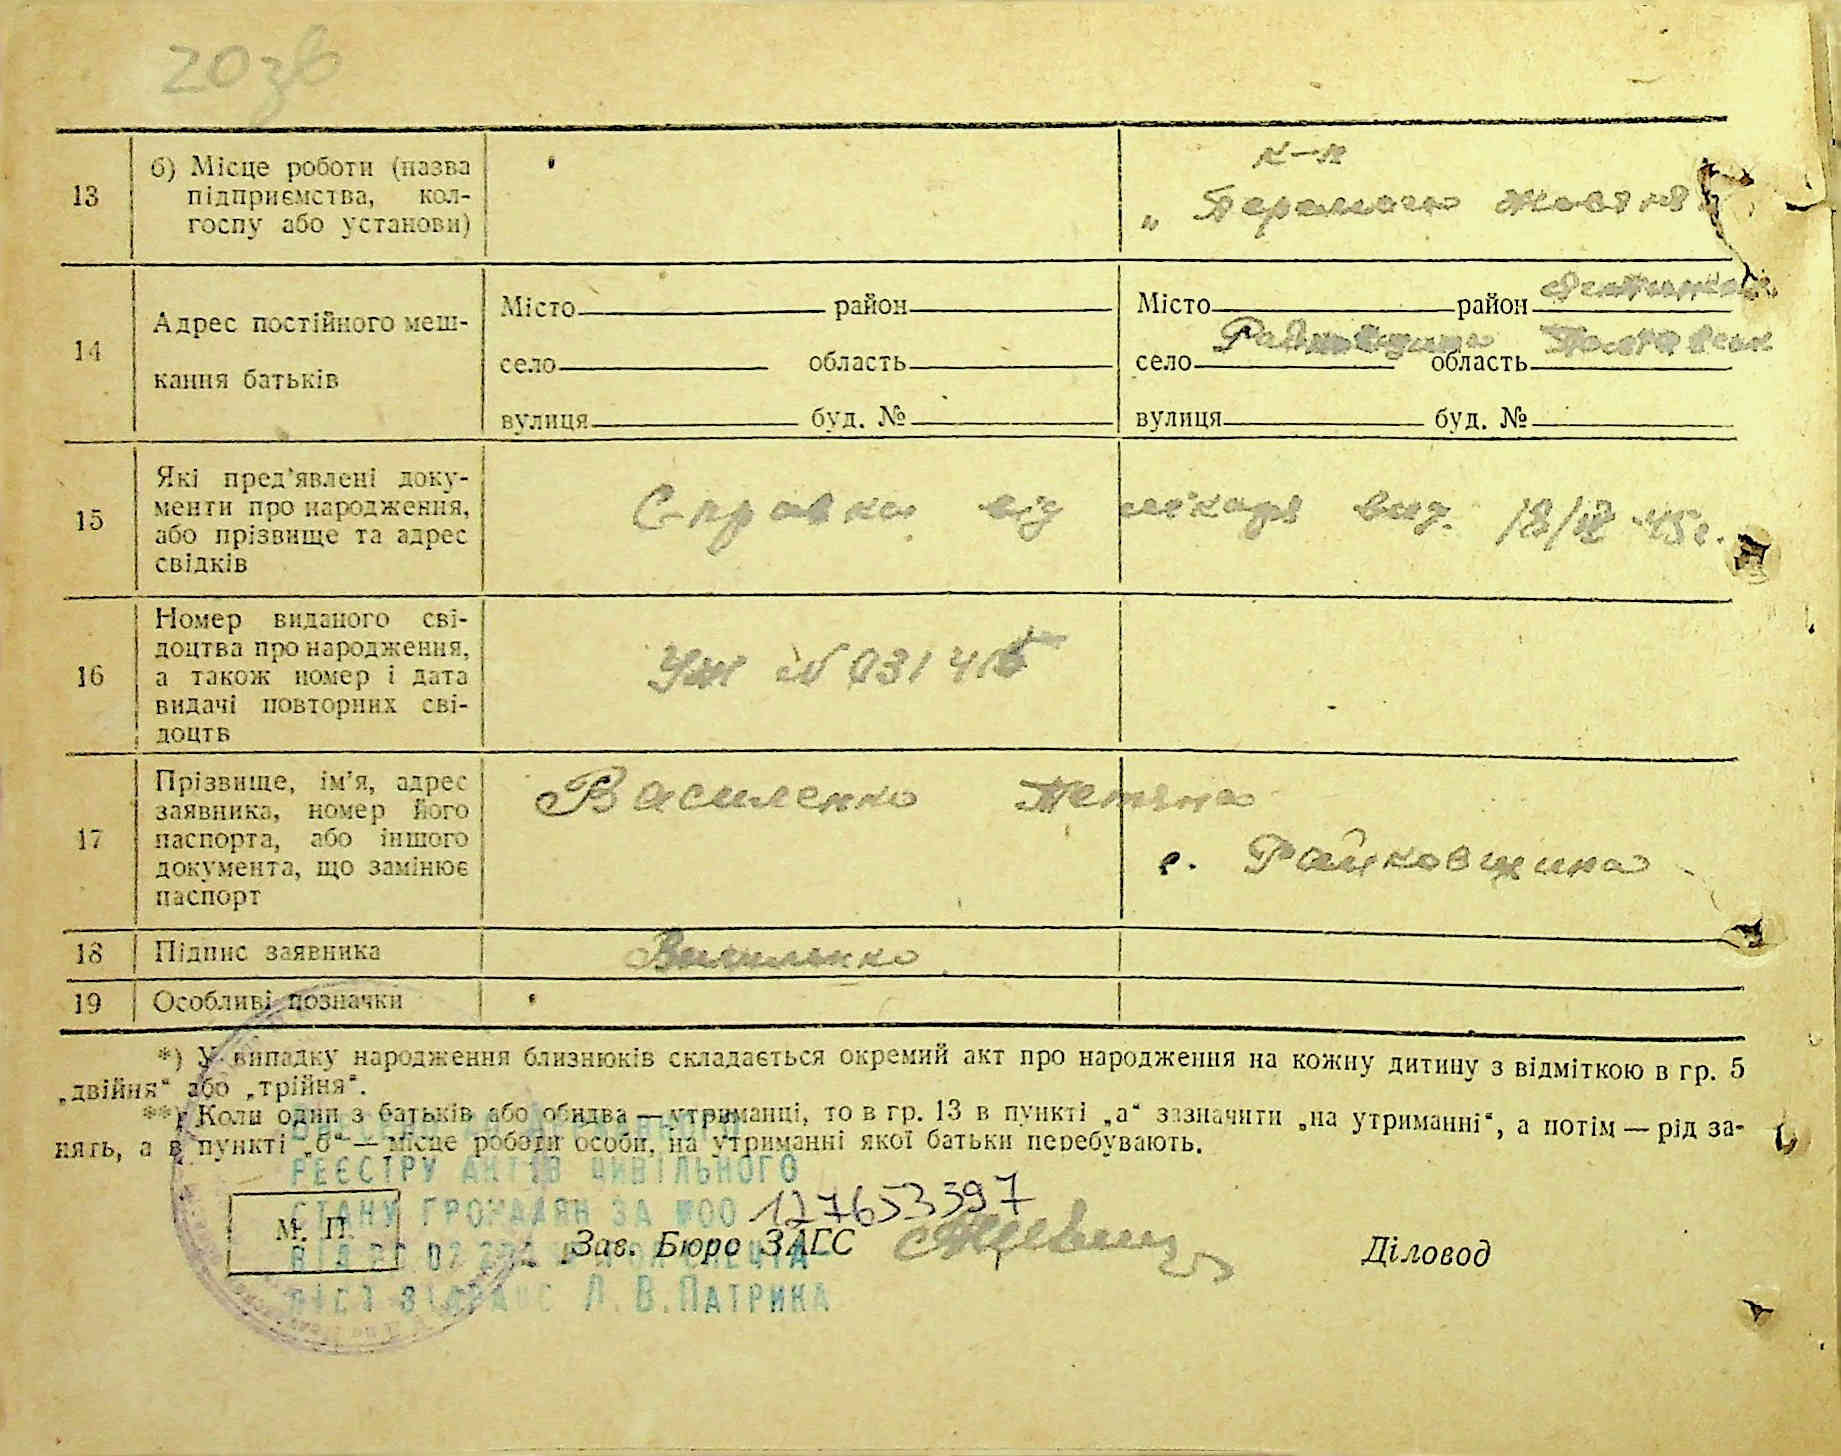 20зв
13
б) Місце роботи (назва
підприємства, кол-
госпу або установи)
к-п
„ Перемога Жовтня
14
Адрес постійного меш-
кання батьків
Місто район
село область
вулиця буд. №
Місто район
село Райковщина область Полтавськ
вулиця буд. №
15
Які пред'явлені доку-
менти про народження,
або прізвище та адрес
свідків
Справка від лікаря вид. 45г.
16
Номер виданого сві-
доцтва про народження,
а також номер і дата
видачі повторних сві-
доцтв
№ 031415
17
Прізвище, ім'я, адрес
заявника, номер його
паспорта, або іншого
документа, що замінює
паспорт
Василенко Тетяна
с. Райковщина
18 Підпис заявника
Василенко
19 Особливі позначки
*) У випадку народження близнюків складається окремий акт про народження на кожну дитину з відміткою в гр. 5
„двійня“ або „трійня“.
**) Коли один з батьків або обидва — утриманці, то в гр. 13 в пункті „а“ зазначити „на утриманні“, а потім — рід за-
нять, а в пункті „б“ — місце роботи особи, на утриманні якої батьки перебувають.
РЕЄСТРУ АКТІВ ЦИВІЛЬНОГО
СТАНУ ГРОМАДЯН ЗА №00 127653397
М. П.
Зав. Бюро ЗАГС
Діловод
Л.В.ПАТРИКА